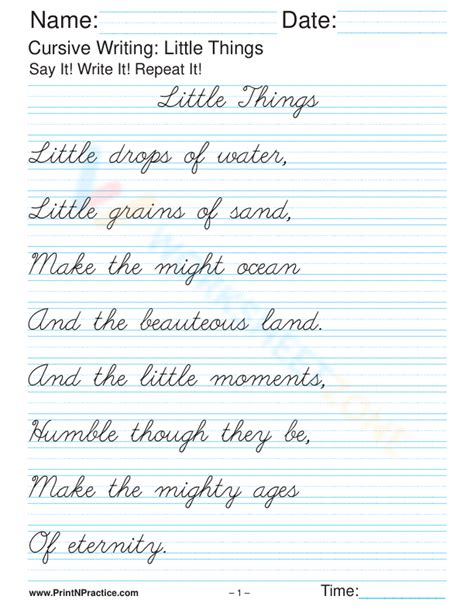 Name: Date:
Cursive Writing: Little Things
Say It! Write It! Repeat It!
Little Things
Little drops of water,
Little grains of sand,
Make the might ocean
And the beauteous land.
And the little moments,
Humble though they be,
Make the mighty ages
Of eternity.
WORKSHEETZONE
www.PrintNPractice.com – 1 – Time: